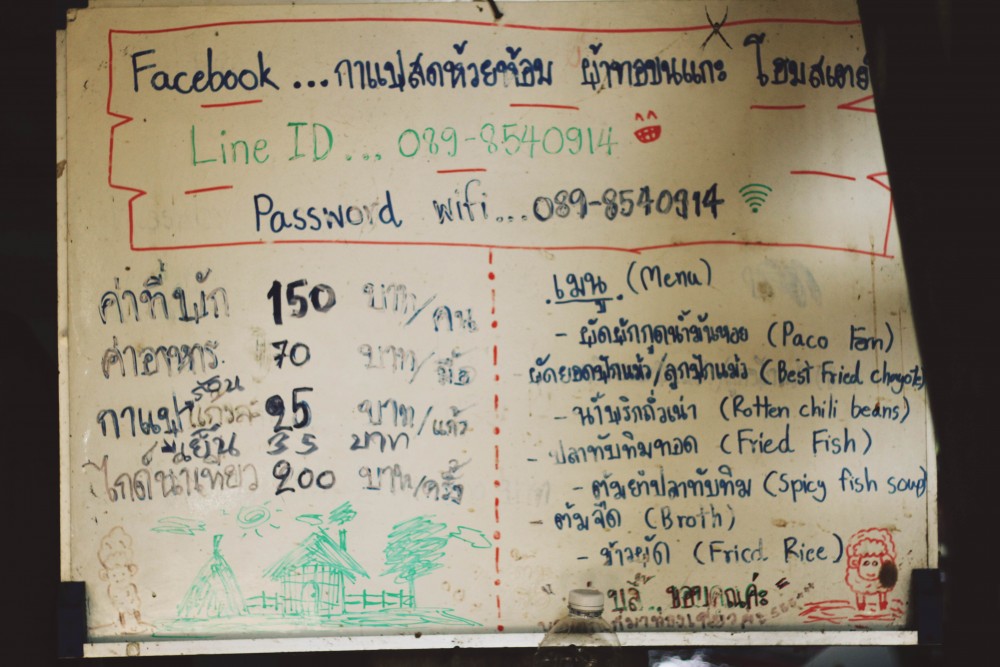 Facebook ...กาแฟสดห้วยห้อม ผ้าทอขนแกะ โฮมสเตย์
Line ID ... 089-8540914
Password wifi...089-8540914
ค่าที่พัก 150 บาท/คน
ค่าอาหาร 70 บาท/มื้อ
ร้อน
กาแฟ 25 บาท/แก้ว
เย็น 35 บาท
ไกด์นำเที่ยว 200 บาท/ครั้ง
เมนู (Menu)
- ผัดผักกูดน้ำมันหอย (Paco Fern)
ผัดยอดฟักแม้ว/ลูกฟักแม้ว (Best Fried chayote)
- น้ำพริกถั่วเน่า (Rotten chili beans)
- ปลาทับทิมทอด (Fried Fish)
- ต้มยำปลาทับทิม (Spicy fish soup)
- ต้มจืด (Broth)
- ข้าวผัด (Fried Rice)
ขอบคุณค่ะ